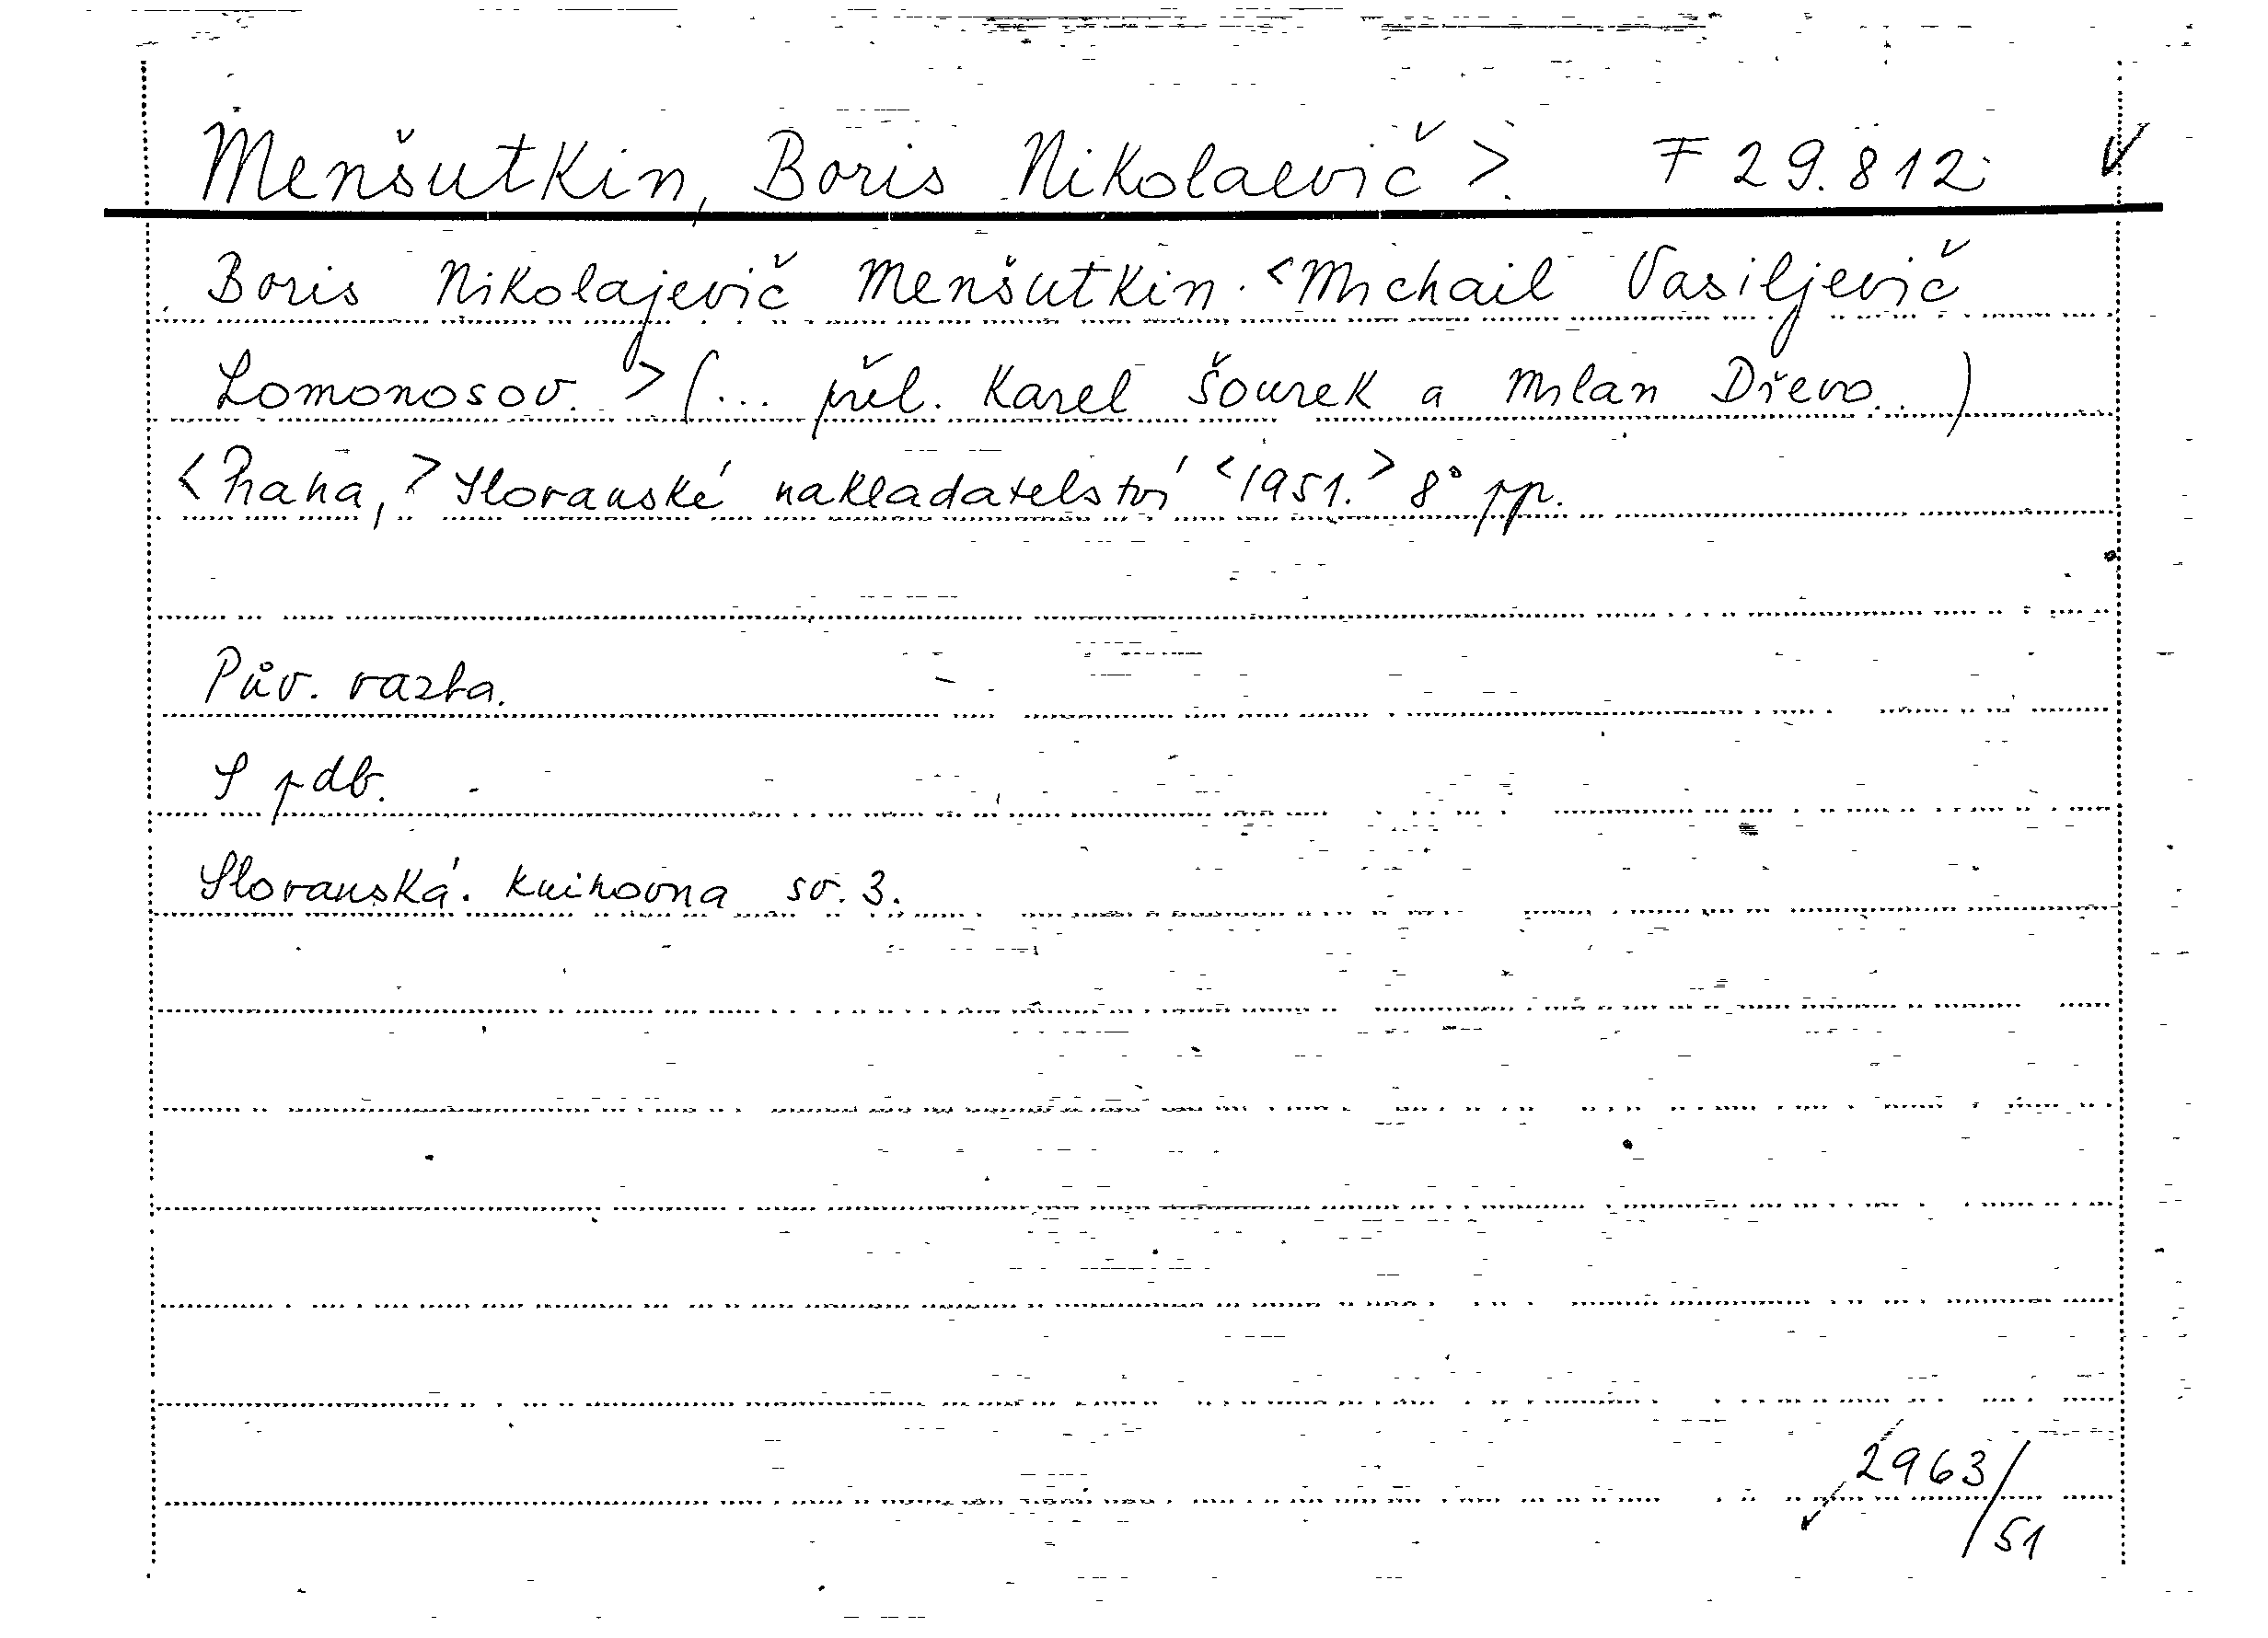 Menšutkin, Boris Nikolaevič > F 29.812
Boris Nikolajevič Menšutkin. <Michail Vasiljevič
Lomonosov. > (... přel. Karel Šourek a Milan Dřevo.)
<Praha, > Slovanské nakladatelství <1951. > 8° pp.
Pův. vazba.
S pdb.
Slovanská knihovna sv. 3.
2963/
51